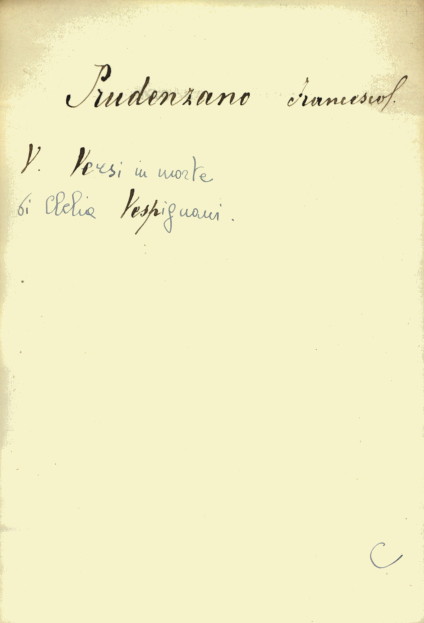 Prudenzano Francesco.
V. Versi in morte
di Clelia Vespignani.
C